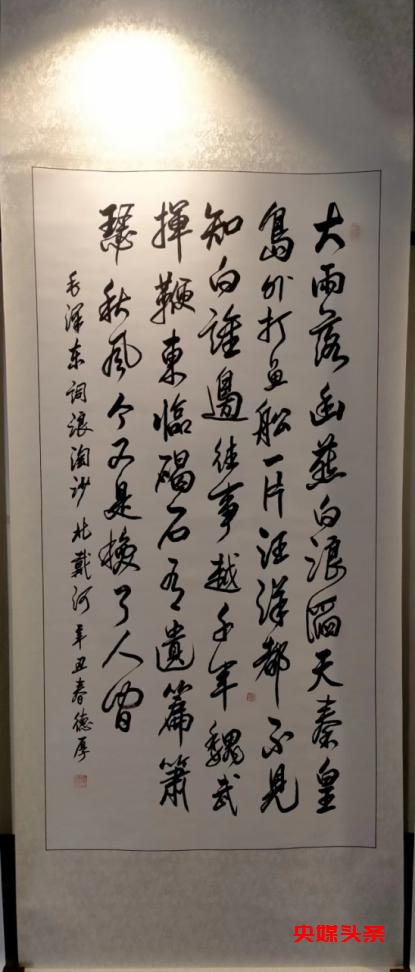 大雨落幽燕白浪滔天秦皇
島外打魚船一片汪洋都不見
知向誰邊往事越千年魏武
揮鞭東臨碣石有遺篇蕭
瑟秋風今又是換了人間
毛澤东詞浪淘沙北戴河辛丑春德厚
央媒头条